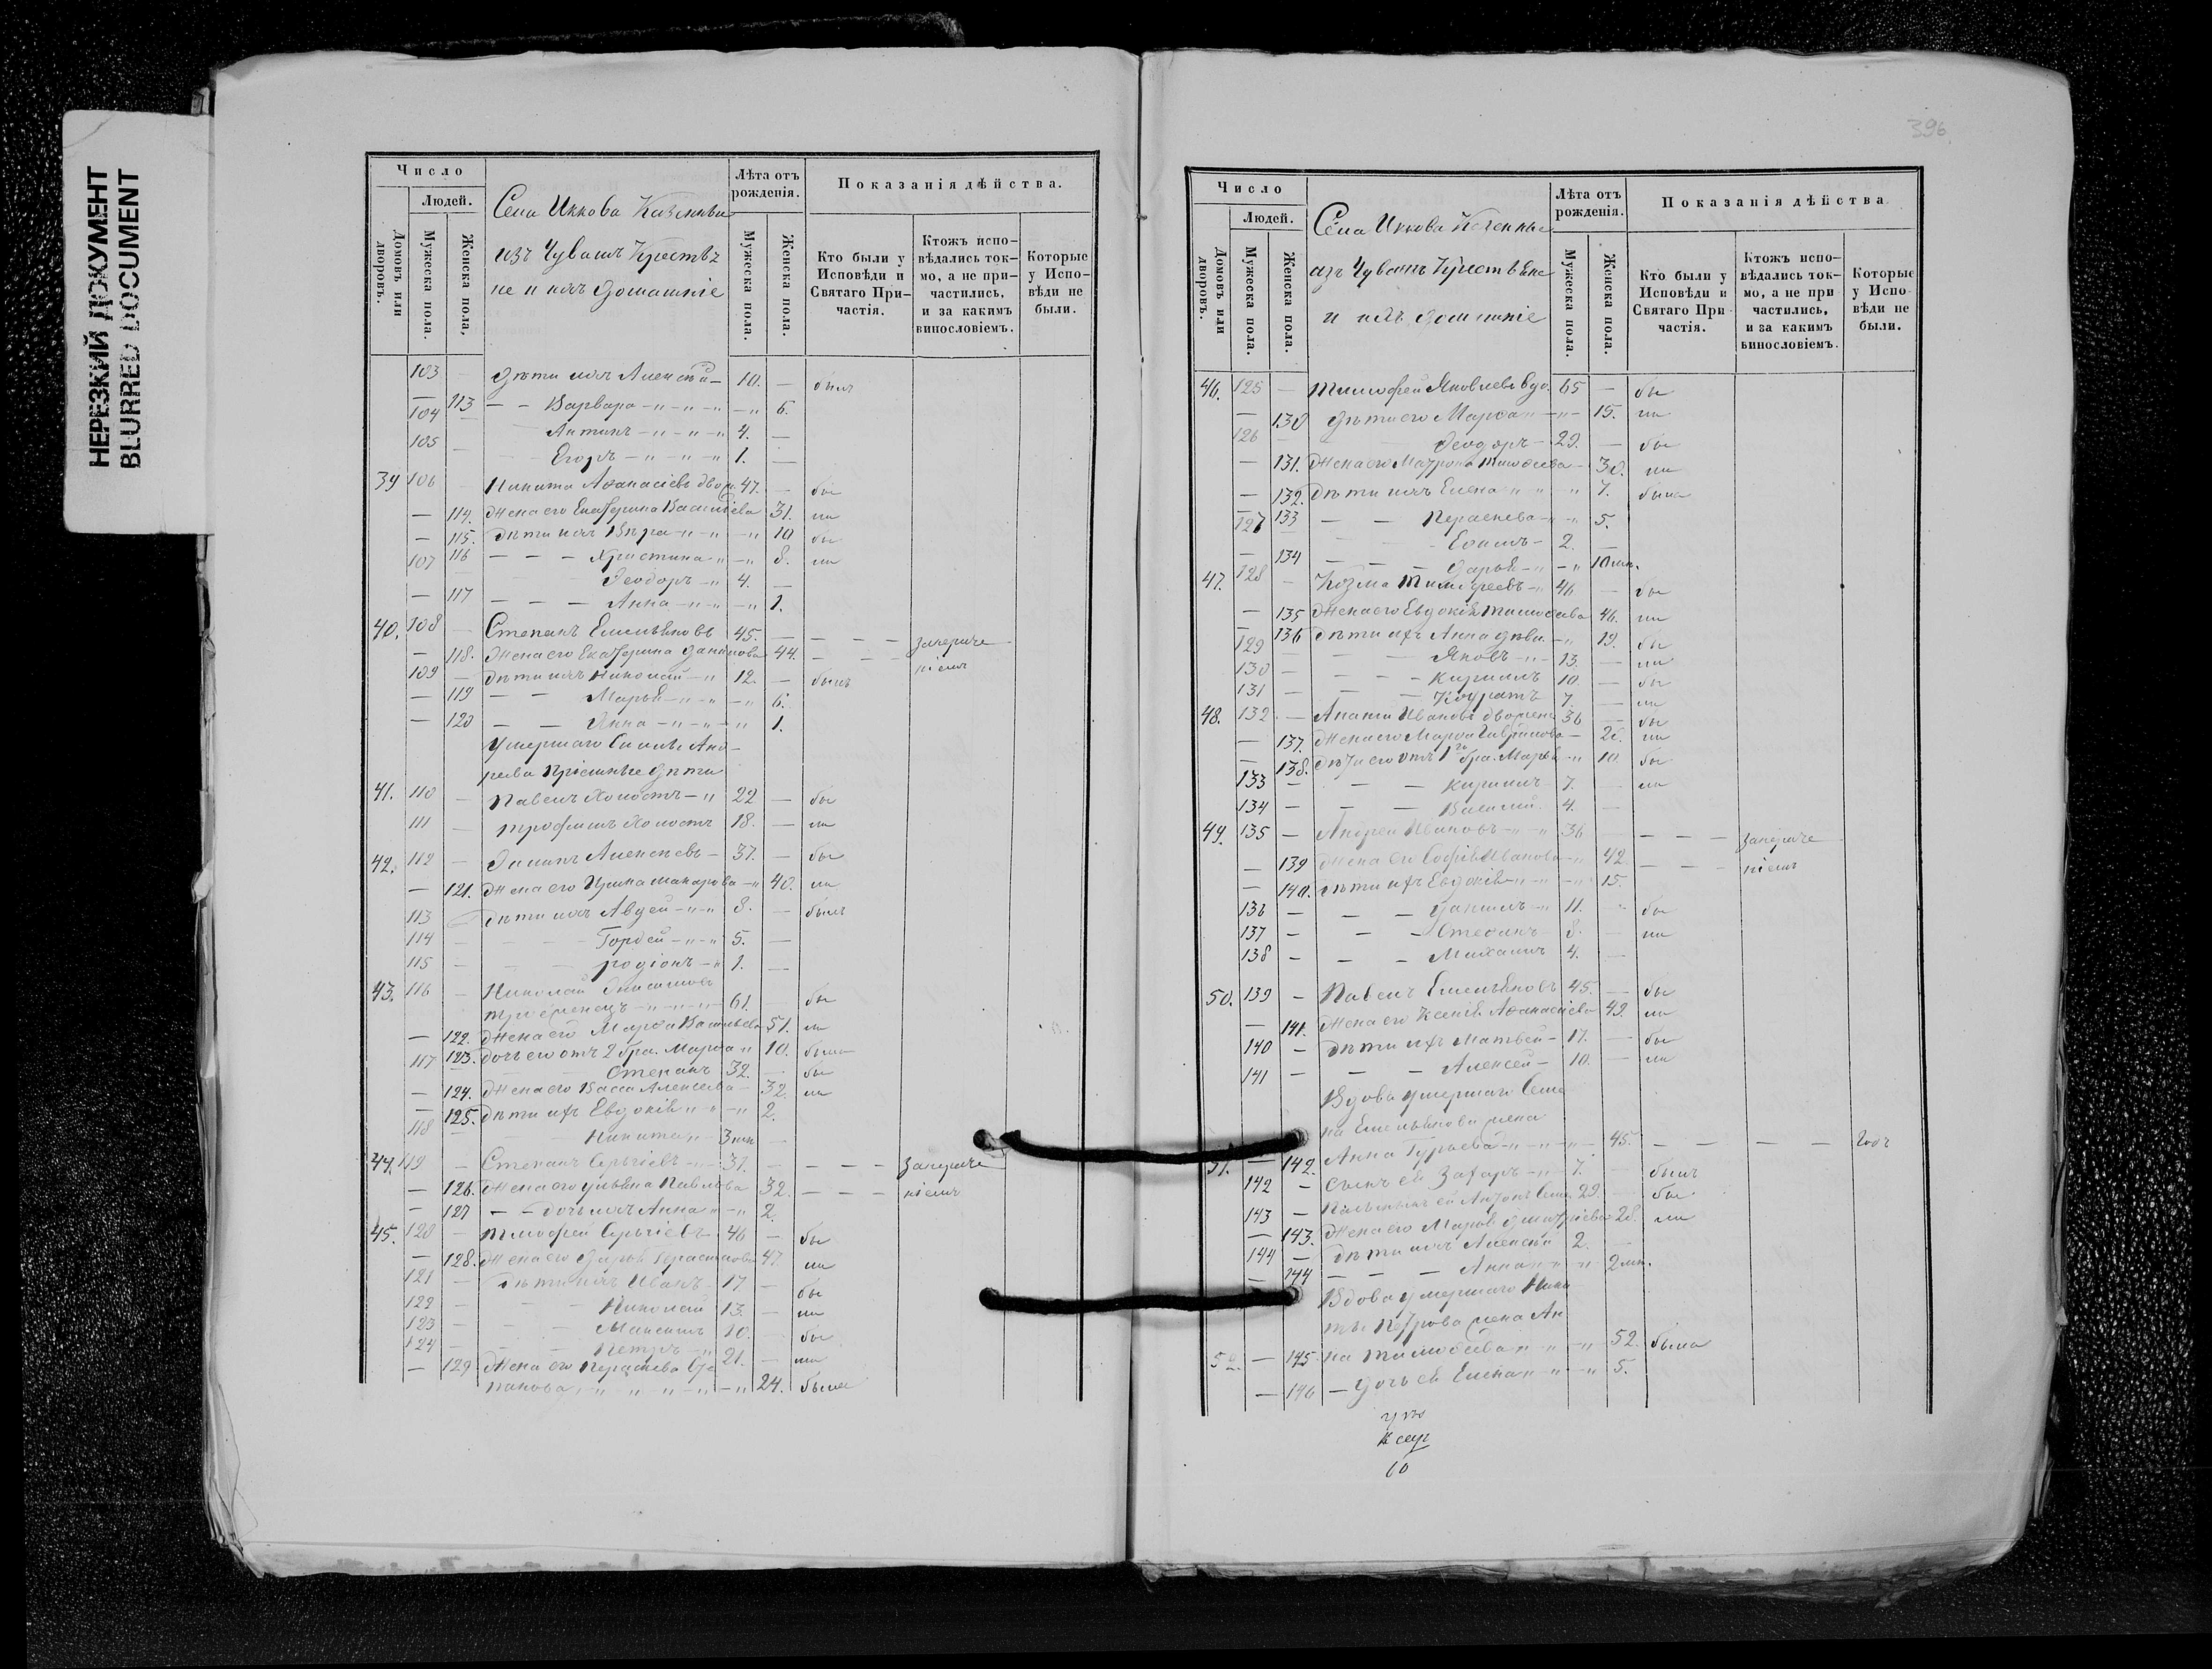 НЕРЕЗКИЙ ДОКУМЕНТ
BLURRED DOCUMENT
Число
Людей.
Домовъ или дворовъ.
Мужеска пола.
Женска пола.
Села Иккова Казенные
изъ Чувашъ Крестья
не и ихъ домашніе
Лѣта отъ рожденія.
Мужеска пола.
Женска пола.
Показанія дѣйства.
Кто были у Исповѣди и Святаго При-частія.
Ктожъ испо-вѣдались ток-мо, а не при-частились, и за какимъ винословіемъ.
Которые у Испо-вѣди не были.
103 — дѣти ихъ Алексѣй — 10. — былъ
— 113 — — Варвара — 6.
104 Антипъ 4. —
105 — Егоръ 1. —
39 106 — Никита Аѳанасіевъ 47. — бы
— 114. Жена его Екатерина Василіева 31. ли
— 115. дѣти ихъ Вѣра 10 бы
— 116 — — — Христина 8. ли
107 Ѳеодоръ 4. —
— 117 — — — Анна 1.
40. 108 — Степанъ Емельяновъ 45. — — — — за нераче
— 118. Жена его Екатерина Данилова 44. — — ніемъ
109 — дѣти ихъ Николай 12. — былъ
— 119 — — Марья 6.
— 120 — — Анна 1.
Умершаго
дѣти
41. 110 — Павелъ Холостъ 22 — бы
111 — Трофимъ Холостъ 18. — ли
42. 112 — Филипъ Алексѣевъ 37. — бы
— 121. Жена его Ирина Макарова 40. ли
113 — дѣти ихъ Авдей 8. — былъ
114 — Гордей 5. —
115 — Родіонъ 1. —
43. 116 — Николай
61. — бы
— 122. Жена его Марѳа Васильева 51. ли
— 123. дочь его отъ 2 бра. Марѳа 10. была
117 — Степанъ 32. — бы
— 124. Жена его Васса Алексеева 32. ли
— 125. дѣти ихъ Евдокія 2.
118 — Никита 3 мѣ —
44. 119 — Степанъ Сергіевъ 37. — — — — за нераче
— 126. Жена его Ульяна Павлова 32. — — — ніемъ
— 127 — — дочь ихъ Анна 2.
45. 120 — Тимофей Сергіевъ 46 — бы
— 128. Жена его Дарья Герасимова 47. ли
121 — дѣти ихъ Иванъ 17 — бы
122 — Николай 13. — ли
123 — Максимъ 10. — бы
124 — Петръ 21. — ли
— 129. Жена его Параскева Сте
панова 24. была
396
Число
Людей.
Домовъ или дворовъ.
Мужеска пола.
Женска пола.
Села Иккова Казенные
изъ Чувашъ Крестьяне
и ихъ домашніе
Лѣта отъ рожденія.
Мужеска пола.
Женска пола.
Показанія дѣйства
Кто были у Исповѣди и Святаго При частія.
Ктожъ испо-вѣдались ток-мо, а не при частились, и за какимъ винословіемъ.
Которые у Испо-вѣди не были.
46. 125 — Тимофей Яковлевъ вдо. 65 — бы
— 130 дѣти его Марѳа 15. ли
126 — Ѳеодоръ 29. — бы
— 131. Жена его Матрона Тимоѳеева 30. ли
— 132. дѣти ихъ Елена 7. была
— 133 — — Параскева 5.
127 Ефимъ 2. —
— 134 Дарья 10 мѣ.
47. 128 — Козма Тимофеевъ 46 — бы
— 135 Жена его Евдокія Тимоѳеева 46. ли
— 136 дѣти ихъ Анна дѣви. 19. бы
129 — Яковъ 13. — ли
130 — Кирилъ 10. — бы
131 — Кодратъ 7. — ли
48. 132 — Ананій Ивановъ 36 — бы
— 137. Жена его Марѳа Гаврилова 26. ли
— 138. дѣти его отъ 1го бра. Марья 10. бы
133 — Кирилъ 7. — ли
134 — Василій 4. —
49. 135 — Андрей Ивановъ 36 — — — — за нераче
— 139 Жена его Софія Иванова 42. — — — ніемъ
— 140. дѣти ихъ Евдокія 15.
136 — — — Данилъ 11. бы
137 — — — Стефанъ 8. — ли
138 — — — Михаилъ 4. —
50. 139 — Павелъ Емельяновъ 45. — бы
— 141. Жена его Ксенія Аѳанасіева 49. ли
140 — дѣти ихъ Матвей 17. — бы
141 — — — Алексей 10. — ли
Вдова умершаго Семе
на Емельянова жена
51. — 142. Анна Гурьева 45. — — —
142 — сынъ ей Захаръ 7. — былъ
143 — Антонъ 29. бы
— 143. Жена его Марья Дмитріева 28. ли
144 — дѣти ихъ Алексѣй 2. —
— 144 — — — Анна 2 мѣ.
Вдова умершаго Ники
ты Петрова жена Ан
52. — 145. на Тимоѳеева 52. была
— 146 — дочь ея Елена 5.